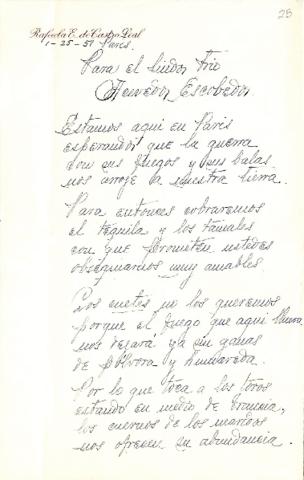 25
Rafaela E. de Castro Leal
1-25-51 Paris.
Para el lindo trio
Acevedo, Escobedo.
Estamos aqui en Paris
esperando que la guerra
con sus fuegos y sus balas
nos arroje a nuestra tierra.
Para entonces cobraremos
el tequila y los tamales
con que prometen ustedes
obsequiarnos muy amables.
Los cuetes no los queremos
porque el fuego que aqui llueva
nos dejará ya sin ganas
de pólvora y humareda.
Por lo que toca a los toros
estando en medio de Francia,
los cuernos de los maridos
nos ofrecen su abundancia.